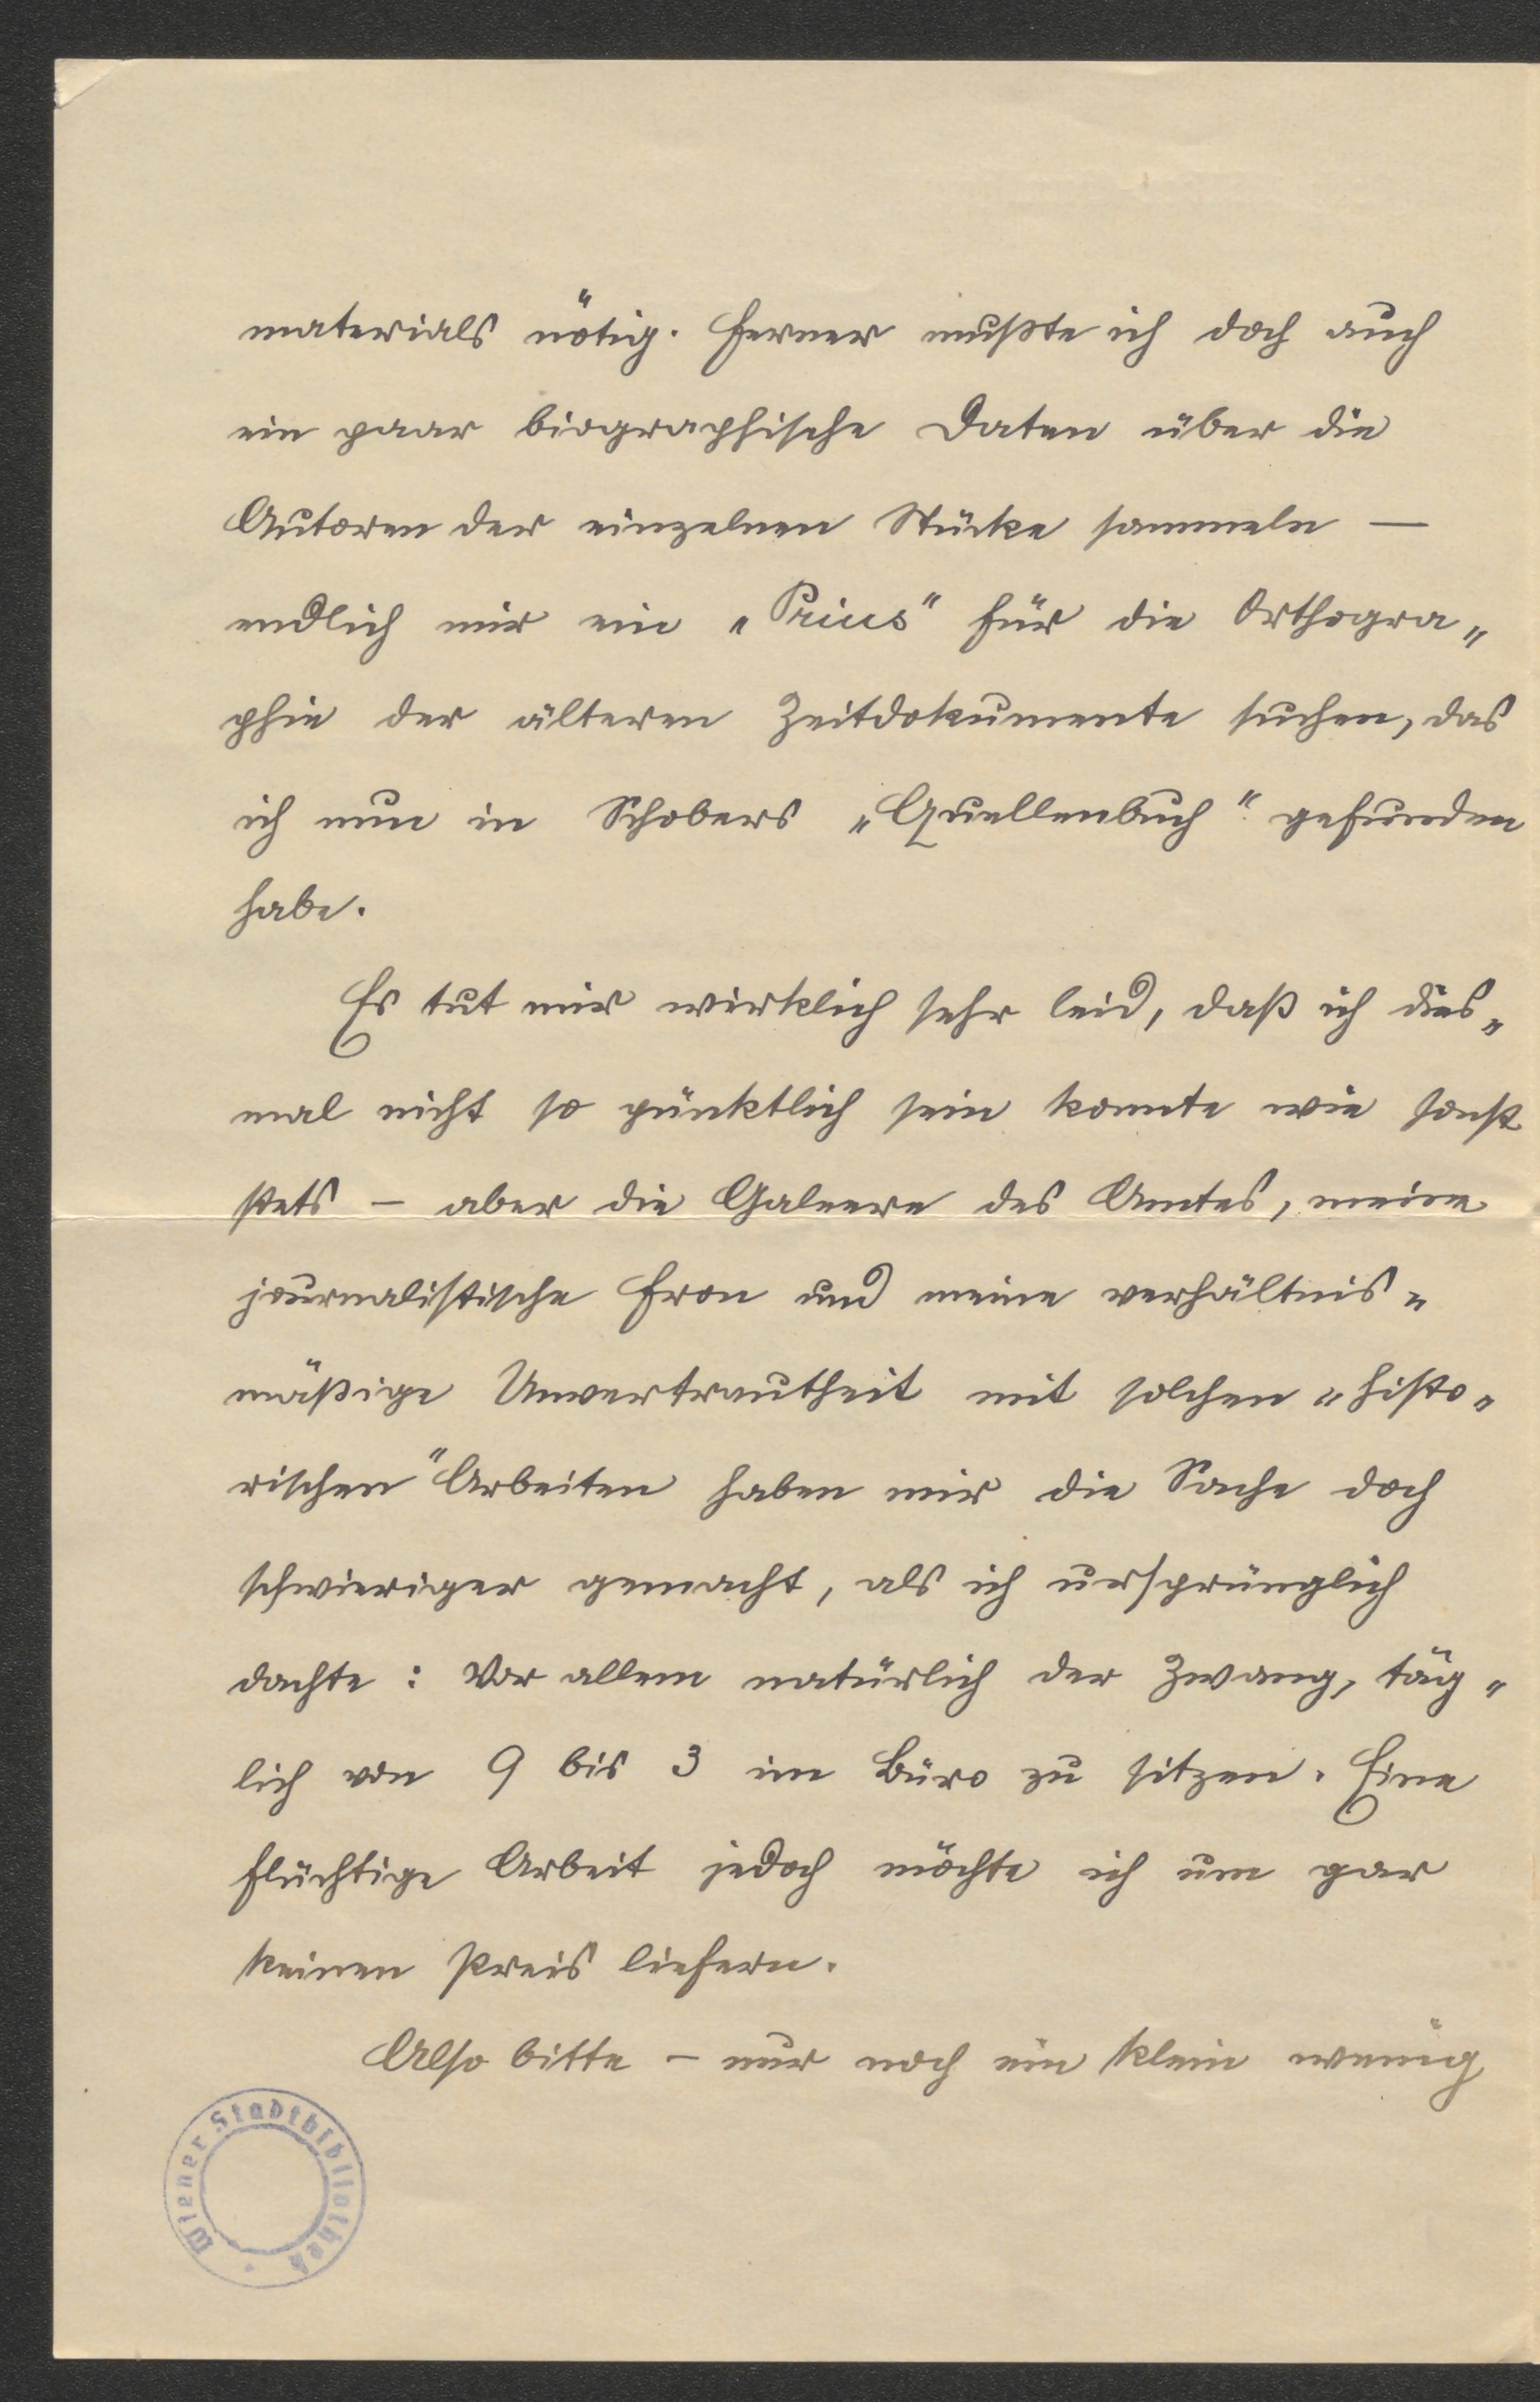 materials nötig. Ferner mußte ich doch auch
ein paar biographische Daten über die
Autoren der einzelnen Stücke sammeln —
endlich mir ein „Prius“ für die Orthogra„
phie der älteren Zeitdokumente suchen, das
ich nun in Schobers „Quellenbuch“ gefunden
habe.
Es tut mir wirklich sehr leid, daß ich dies„
mal nicht so pünktlich sein konnte wie sonst
stets – aber die Galeere des Amtes, meine
journalistische Fron und meine verhältnis„
mäßige Unvertrautheit mit solchen „histo„
rischen“ Arbeiten haben mir die Sache doch
schwieriger gemacht, als ich ursprünglich
dachte: Vor allem natürlich der Zwang, täg„
lich von 9 bis 3 im Büro zu sitzen. Eine
flüchtige Arbeit jedoch möchte ich um gar
keinen Preis liefern.
Also bitte – nur noch ein klein wenig
Wiener Stadtbibliothek